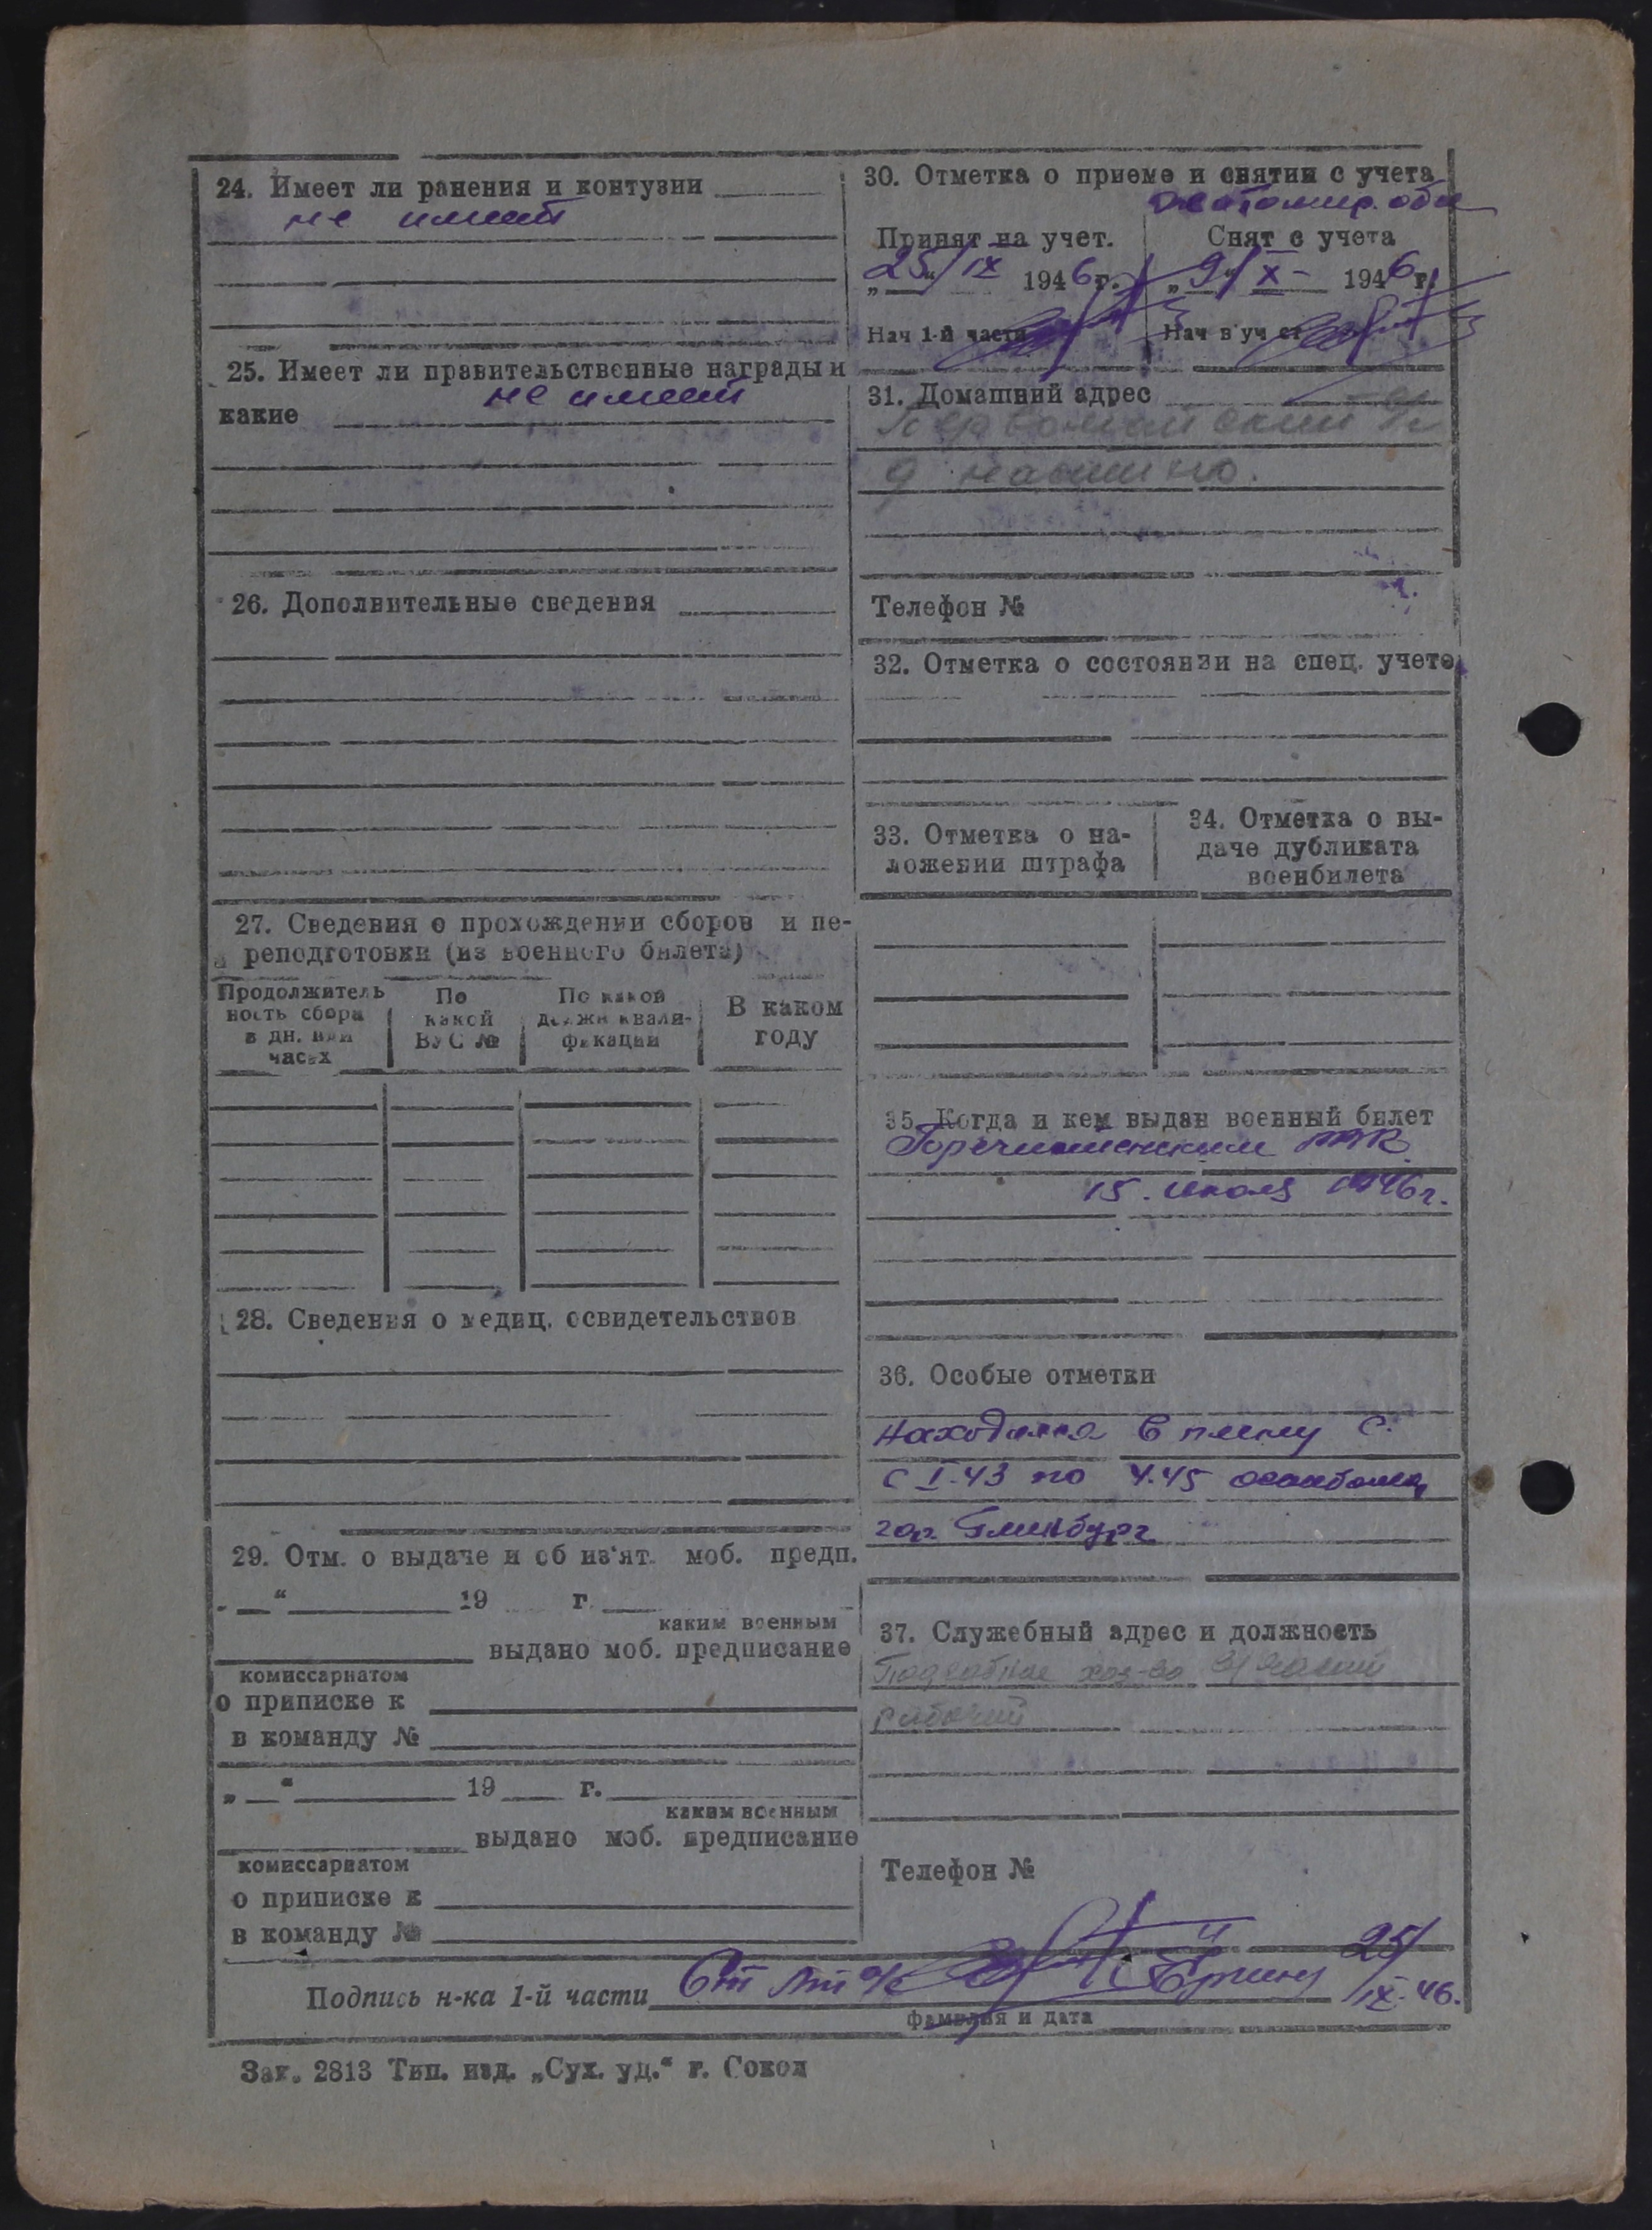 24. Имеет ли ранения и контузии
не имеет
25. Имеет ли правительственные награды и
не имеет
какие
26. Дополнительные сведения
27. Сведения о прохождении сборов и пе-
реподготовки (из военного билета)
Продолжитель
ность сбора
в дн. или
часах
По
какой
ВУС №
По какой
должн квали-
фикации
В каком
году
28. Сведения о медиц. освидетельствов
29. Отм. о выдаче и об из'ят. моб. предп.
„ “ 19 г.
каким военным
выдано моб. предписание
комиссариатом
о приписке к
в команду №
„ “ 19 г.
каким военным
выдано моб. предписание
комиссариатом
о приписке к
в команду №
30. Отметка о приеме и снятии с учета
Принят на учет.
„25“/IX 1946 г.
Нач 1-й части
Снят с учета
„9“/X- 1946 г.
Нач в уч ст
31. Домашний адрес
Первомайский
д
Телефон №
32. Отметка о состоянии на спец. учете
33. Отметка о на-
ложении штрафа
34. Отметка о вы-
даче дубликата
военбилета
35. Когда и кем выдан военный билет
15. июля 1946 г.
36. Особые отметки
Находился в плену с.
с I.43 по 4.45
гор.
37. Служебный адрес и должность
Подсобное хоз-во
рабочий
Телефон №
Подпись н-ка 1-й части Ст Лт 25/IX-46.
фамилия и дата
Зак. 2813 Тип. изд. „Сух. уд.“ г. Сокол